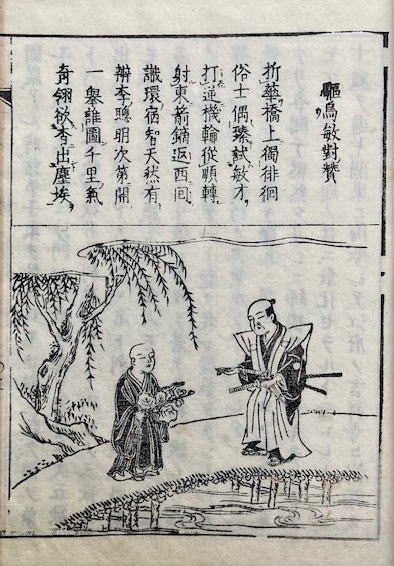 驅烏敏對贊
折華橋上獨徘徊
俗士偶臻試敏才
打逆機輪從顛轉
射東箭鏑返西回
識環宿智天然有
辨李聰明次第開
一舉誰圖千里氣
奇翎欲奮出塵埃